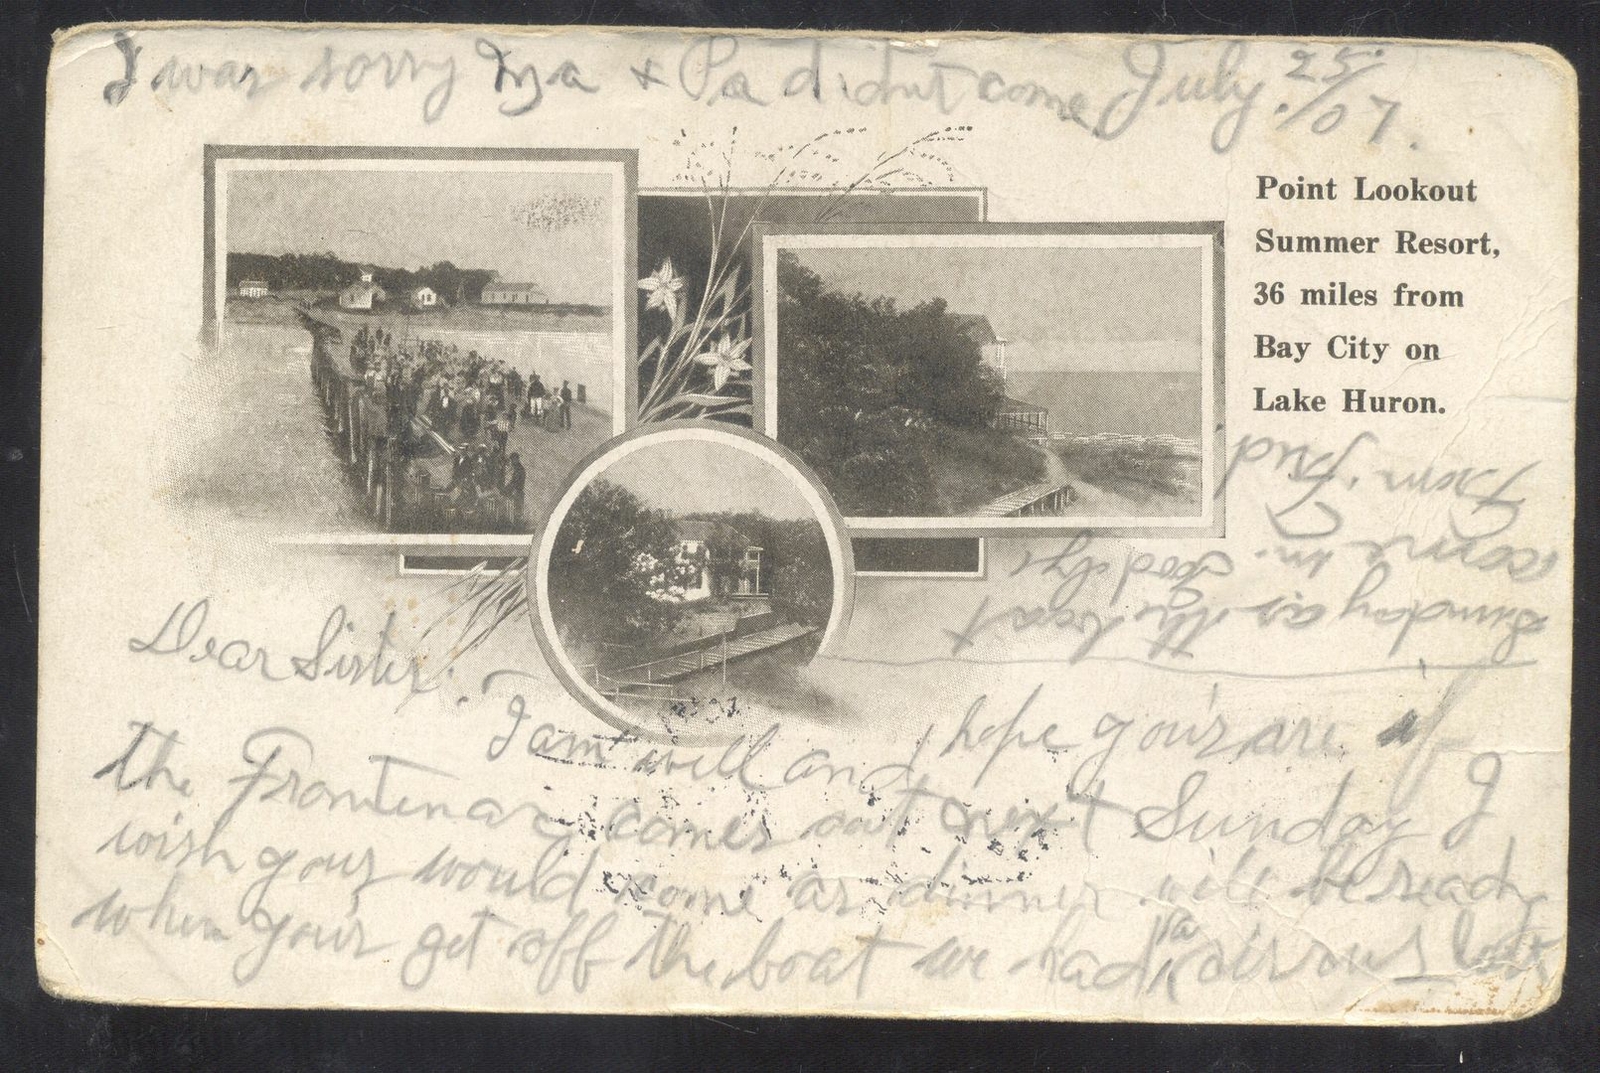 I was sorry Ma & Pa didnt come July. 25/07.
Point Lookout
Summer Resort,
36 miles from
Bay City on
Lake Huron.
Dear Sister:
I am well and hope your are if
the Frontenac comes out next Sunday I
wish your would come as dinner will be ready
when your get off the boat we had a circus last
Sunday as the boat
came in. Good bye
From Fred